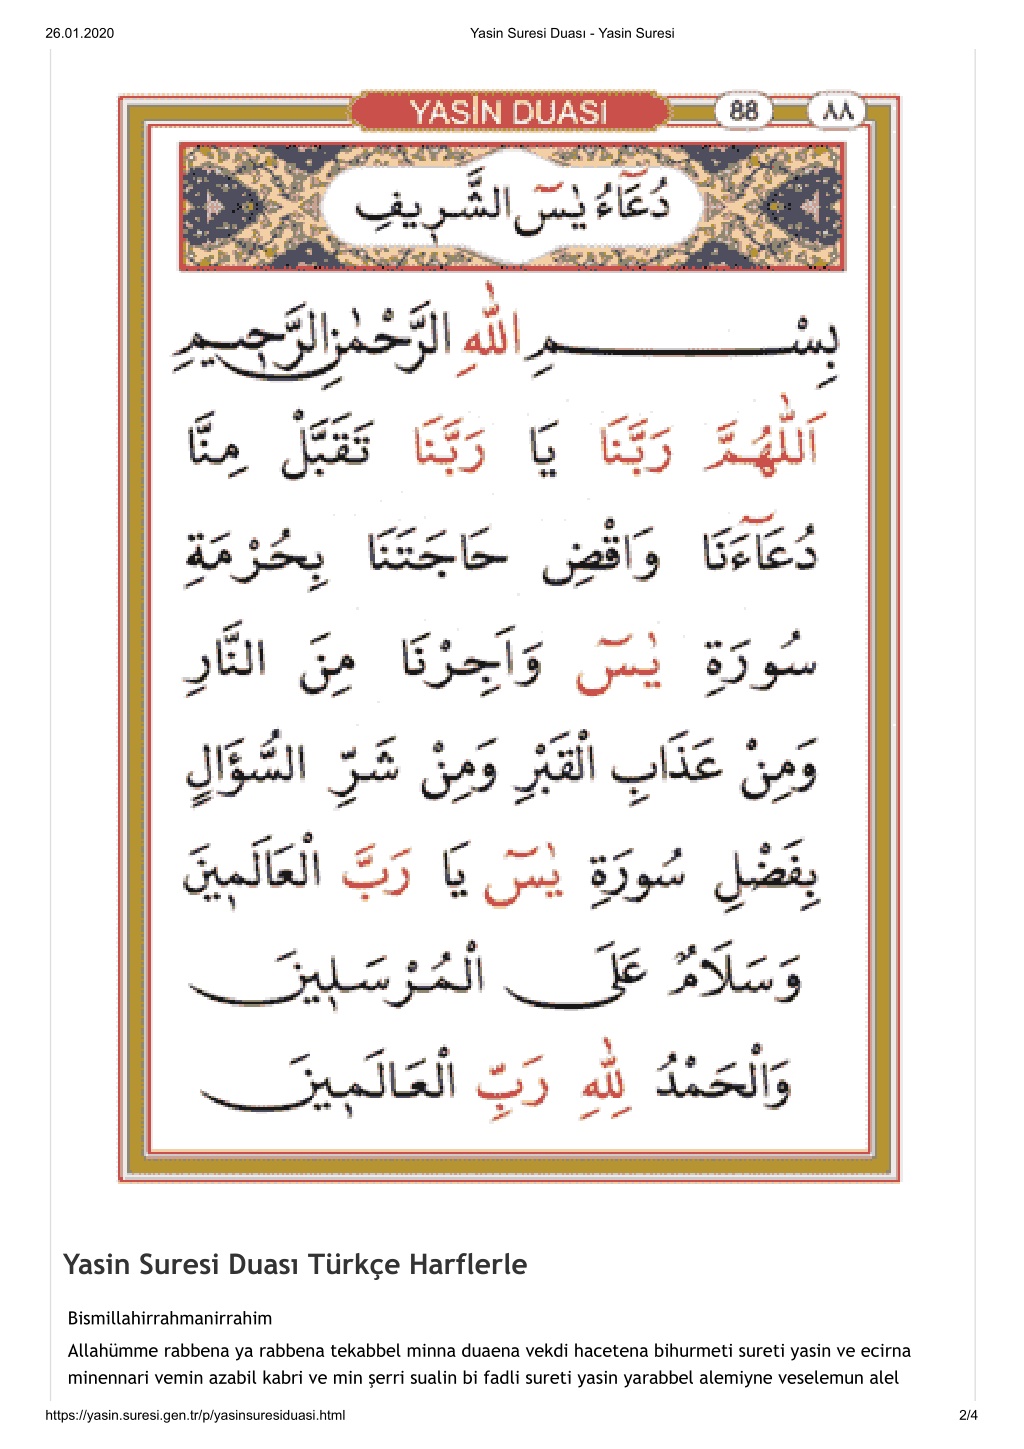 26.01.2020 Yasin Suresi Duası - Yasin Suresi
YASİN DUASI 88 ٨٨
دُعَآءُ يٰسٓ الشَّرِيفِ
بِسْمِ اللّٰهِ الرَّحْمٰنِ الرَّحِيمِ
اَللّٰهُمَّ رَبَّنَا يَا رَبَّنَا تَقَبَّلْ مِنَّا
دُعَآءَنَا وَاقْضِ حَاجَتَنَا بِحُرْمَةِ
سُورَةِ يٰسٓ وَاَجِرْنَا مِنَ النَّارِ
وَمِنْ عَذَابِ الْقَبْرِ وَمِنْ شَرِّ السُّؤَالِ
بِفَضْلِ سُورَةِ يٰسٓ يَا رَبَّ الْعَالَمِينَ
وَسَلَامٌ عَلَى الْمُرْسَلِينَ
وَالْحَمْدُ لِلّٰهِ رَبِّ الْعَالَمِينَ
Yasin Suresi Duası Türkçe Harflerle
Bismillahirrahmanirrahim
Allahümme rabbena ya rabbena tekabbel minna duaena vekdi hacetena bihurmeti sureti yasin ve ecirna
minennari vemin azabil kabri ve min şerri sualin bi fadli sureti yasin yarabbel alemiyne veselemun alel
https://yasin.suresi.gen.tr/p/yasinsuresiduasi.html 2/4